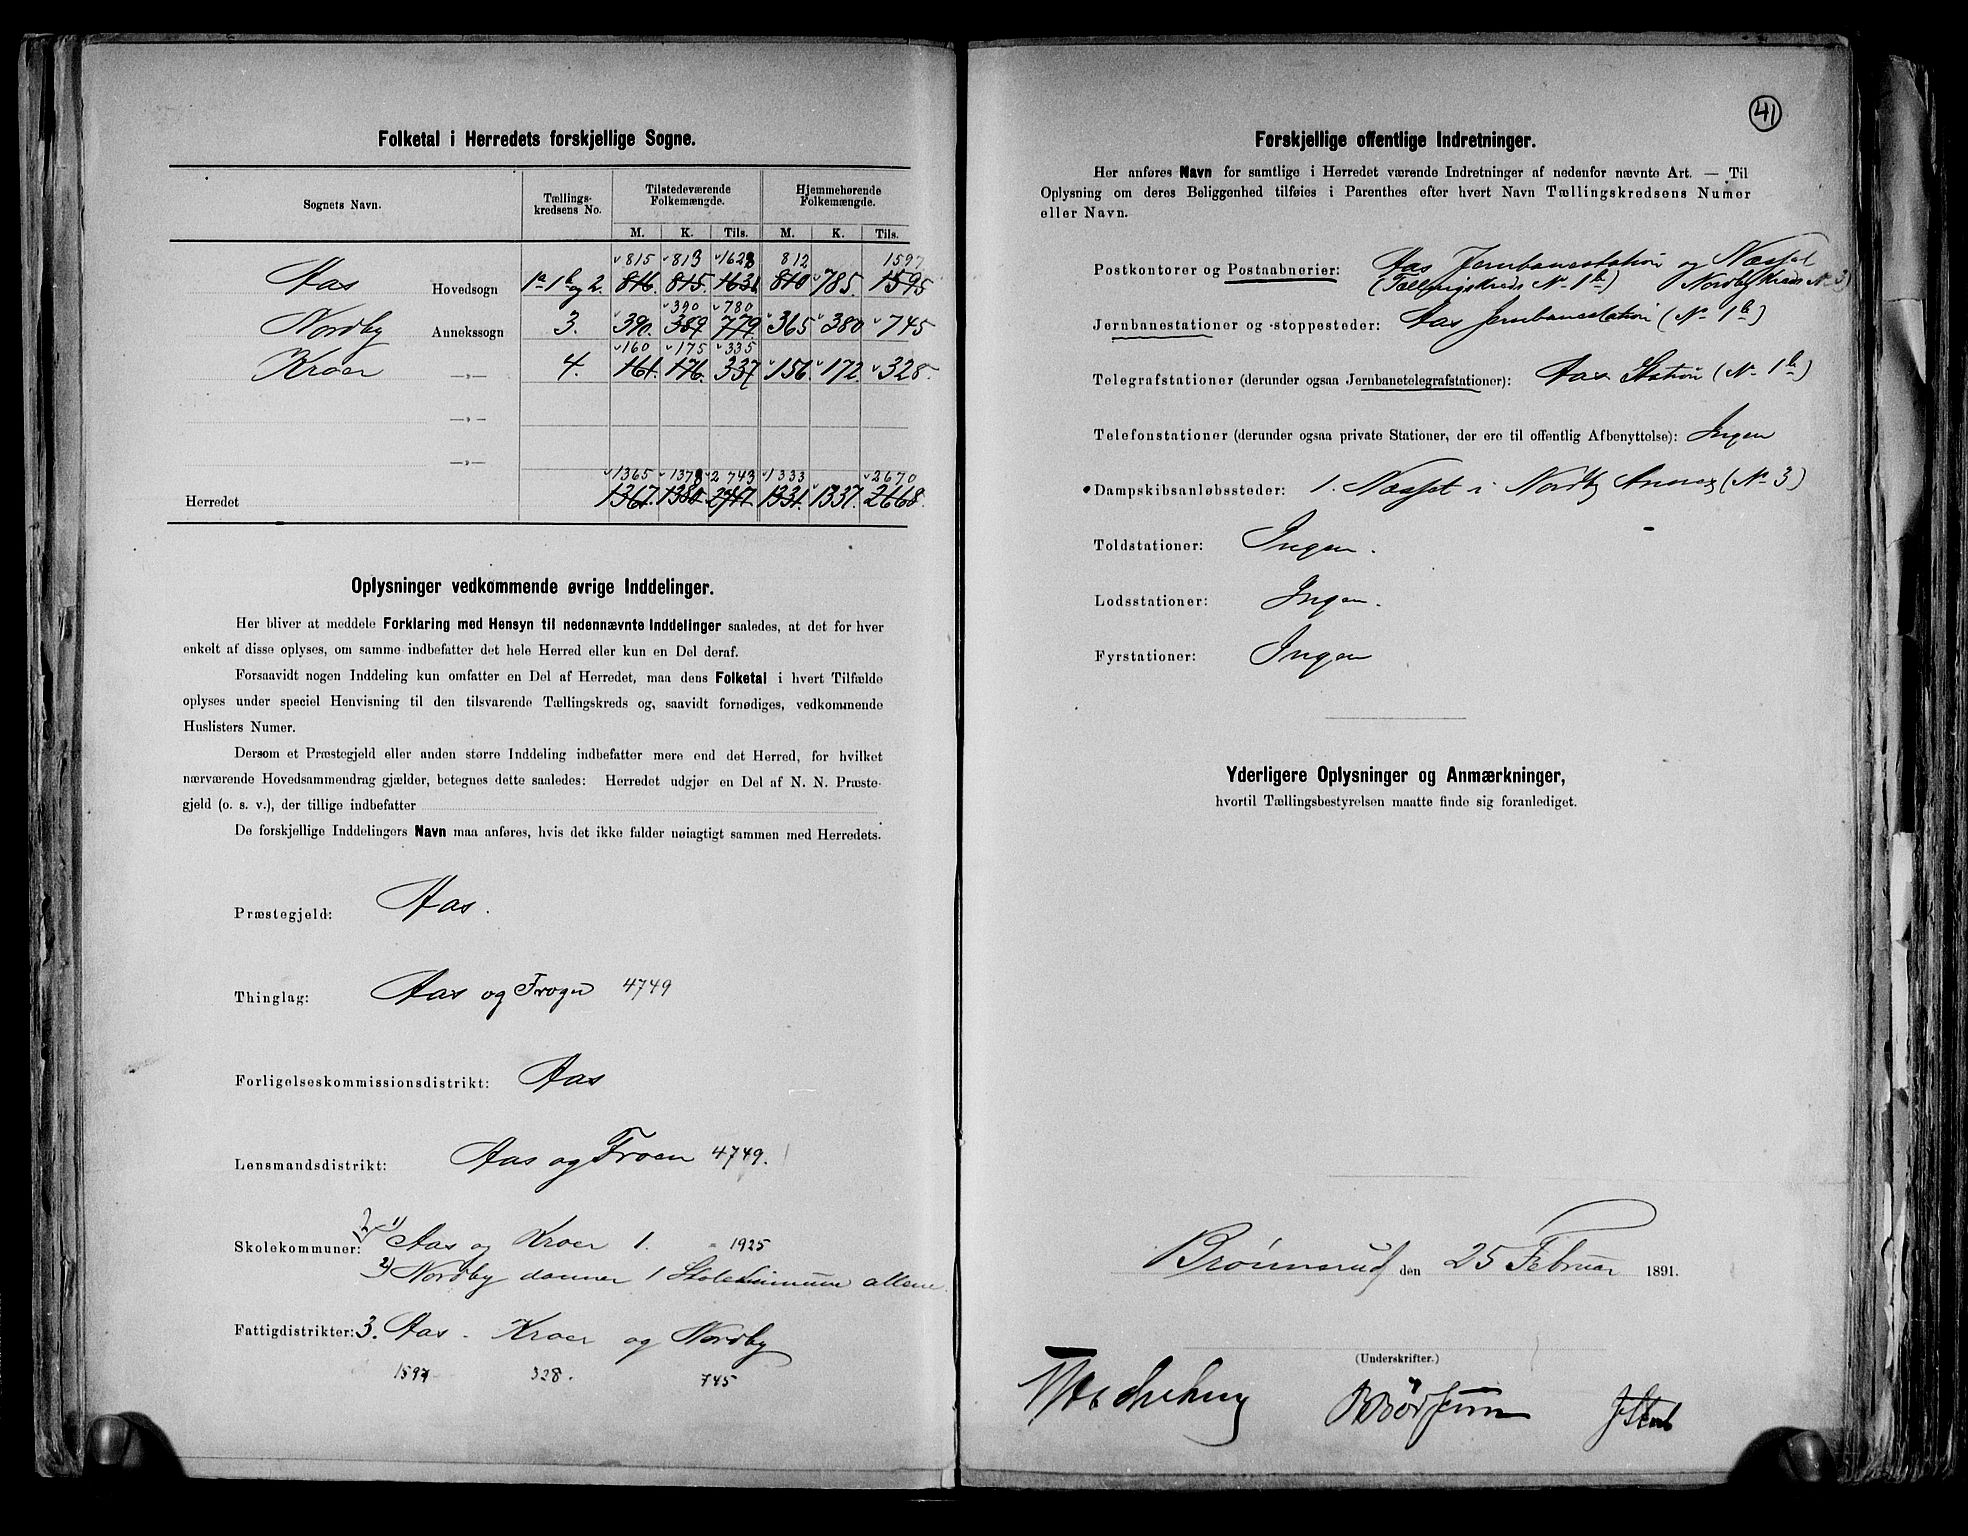 Folketal i Herredets forskjellige Sogne.
Sognets Navn. Tællings-kredsens No. Tilstedeværende Folkemængde. Hjemmehørende Folkemængde.
M. K. Tils. M. K. Tils.
815 813 1628 812 1597
Aas Hovedsogn 1a 1b og 2. 816. 815. 1631 810 785. 1595
390 780
Nordby Annekssogn 3. 390. 389 779. 365 380 745
160 175 335
Kroer —„— 4. 161. 176. 337 156. 172. 328.
—„—
—„—
1365 1378 2743 1333 2670
Herredet 1367. 1380. 2747. 1331. 1337. 2668.
Oplysninger vedkommende øvrige Inddelinger.
Her bliver at meddele Forklaring med Hensyn til nedennævnte Inddelinger saaledes, at det for hver
enkelt af disse oplyses, om samme indbefatter det hele Herred eller kun en Del deraf.
Forsaavidt nogen Inddeling kun omfatter en Del af Herredet, maa dens Folketal i hvert Tilfælde
oplyses under speciel Henvisning til den tilsvarende Tællingskreds og, saavidt fornødiges, vedkommende
Huslisters Numer.
Dersom et Præstegjeld eller anden større Inddeling indbefatter mere end det Herred, for hvilket
nærværende Hovedsammendrag gjælder, betegnes dette saaledes: Herredet udgjør en Del af N. N. Præste-
gjeld (o. s. v.), der tillige indbefatter
De forskjellige Inddelingers Navn maa anføres, hvis det ikke falder nøiagtigt sammen med Herredets.
Præstegjeld: Aas.
Thinglag: Aas og Frogn 4749
Forligelseskommissionsdistrikt: Aas
Lensmandsdistrikt: Aas og Froen 4749.
Skolekommuner: 2 1) Aas og Kroer 1. 1925
2) Nordby danner 1 Skolekommune allene.
Fattigdistrikter: 3. Aas - Kroer og Nordby
1597 328. 745
41
Forskjellige offentlige Indretninger.
Her anføres Navn for samtlige i Herredet værende Indretninger af nedenfor nævnte Art. — Til
Oplysning om deres Beliggenhed tilføies i Parenthes efter hvert Navn Tællingskredsens Numer
eller Navn.
Postkontorer og Postaabnerier: Aas Jernbanestation og Næsset
(Tællingskreds No 1b) Nordby Kreds No 3)
Jernbanestationer og -stoppesteder: Aas Jernbanestation (No 1b)
Telegrafstationer (derunder ogsaa Jernbanetelegrafstationer): Aas Station (No 1b)
Telefonstationer (derunder ogsaa private Stationer, der ere til offentlig Afbenyttelse): Ingen
Dampskibsanløbssteder: 1. Næsset i Nordby Annex (No 3)
Toldstationer: Ingen.
Lodsstationer: Ingen.
Fyrstationer: Ingen
Yderligere Oplysninger og Anmærkninger,
hvortil Tællingsbestyrelsen maatte finde sig foranlediget.
Brønnerud den 25 Februar 1891.
(Underskrifter.)